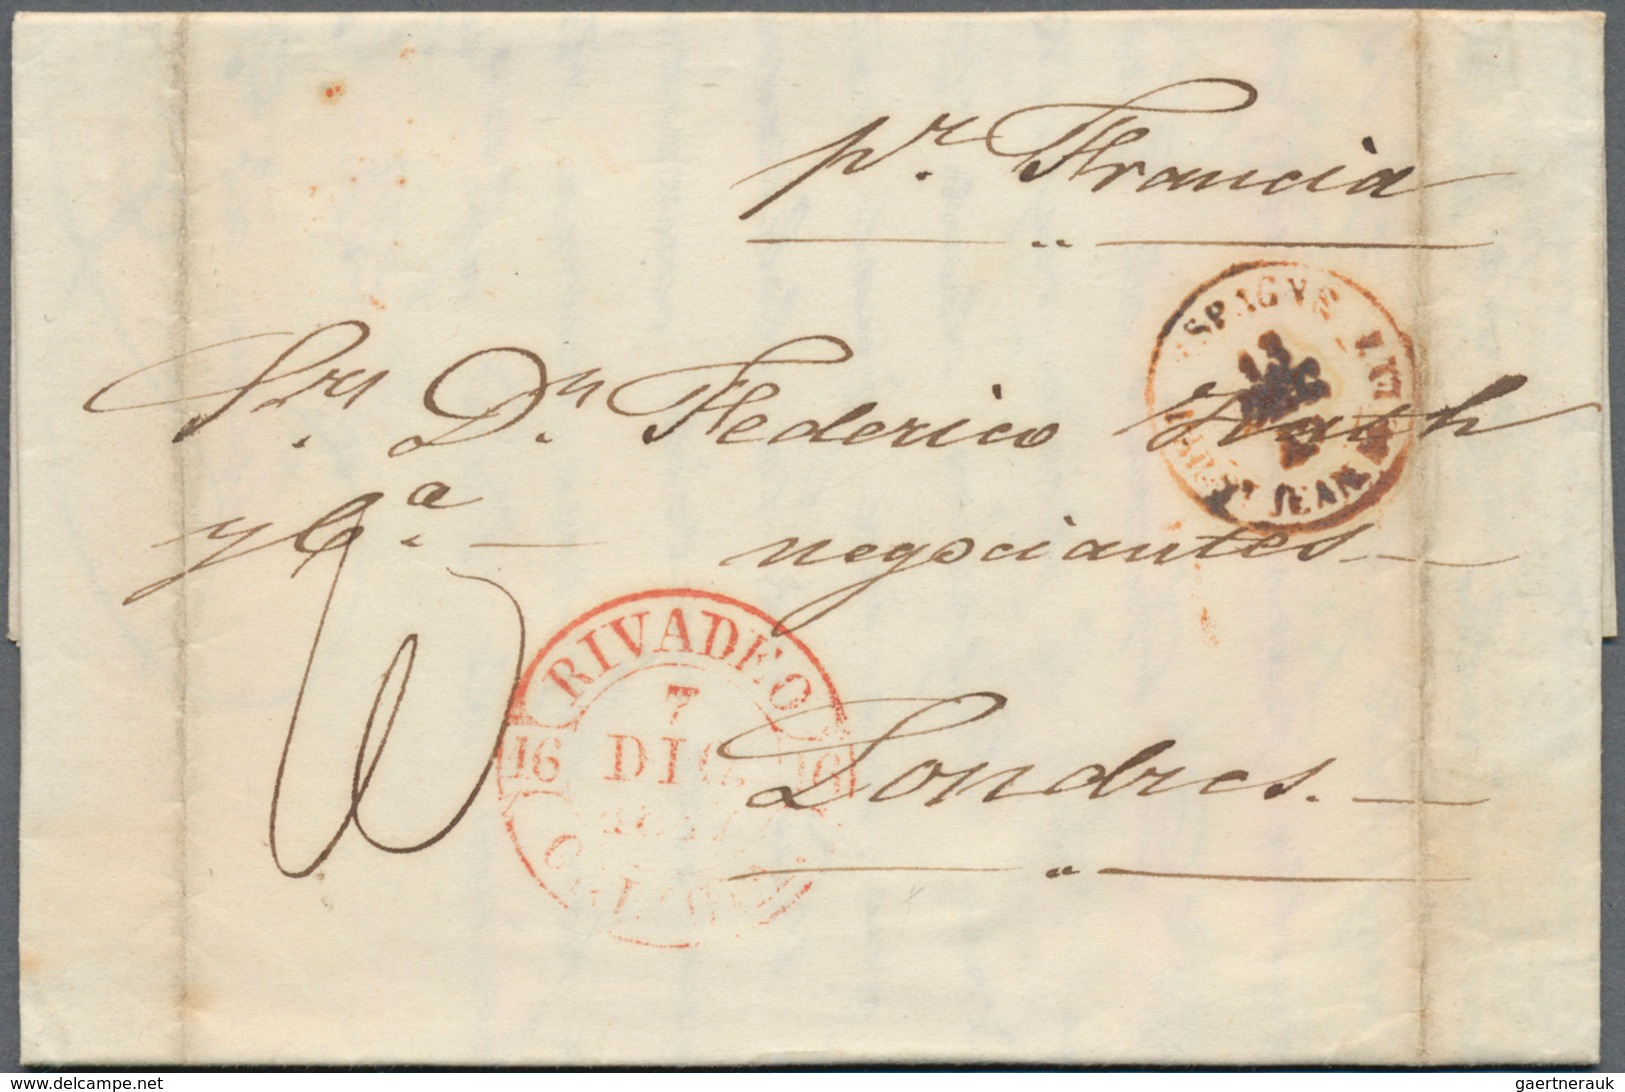 pr. Francia
ESPAGNE
13
DEC
ST JEAN
Sres Dn Federico Huth
y Ca negociantes
RIVADEO
7
16 DIC. 16
Londres.
www.delcampe.net
gaertnerauk